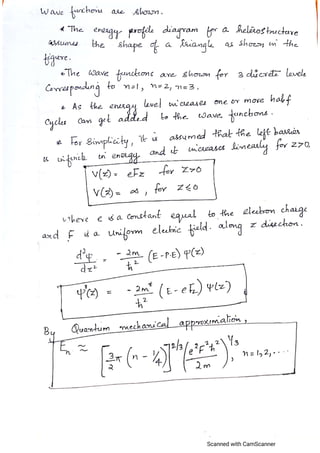 wave functions are shown.
* The energy profile diagram for a heterostructure
assumes the shape of a triangle as shown in the
figure.
* The wave functions are shown for 3 discrete levels
Corresponding to n=1, n=2, n=3.
* As the energy level increases one or more half
Cycles can get added to the wave functions.
* For Simplicity, it is assumed that the left barrier
is infinite in energy and it increases linearly for z>0.
V(z) = eFz for z>0
V(z) = ∞, for z≤0
where e is a constant equal to the electron charge
and F is a Uniform electric field along z direction.
d²ψ/dz² = -2m/ħ² (E-P.E) ψ(z)
ψ''(z) = -2m*/ħ² (E-eFz) ψ(z)
By Quantum mechanical approximation,
Eₙ ≈ [3/2 π (n - 1/4)]^2/3 (e²F²ħ²/2m)^1/3, n=1,2,....
Scanned with CamScanner